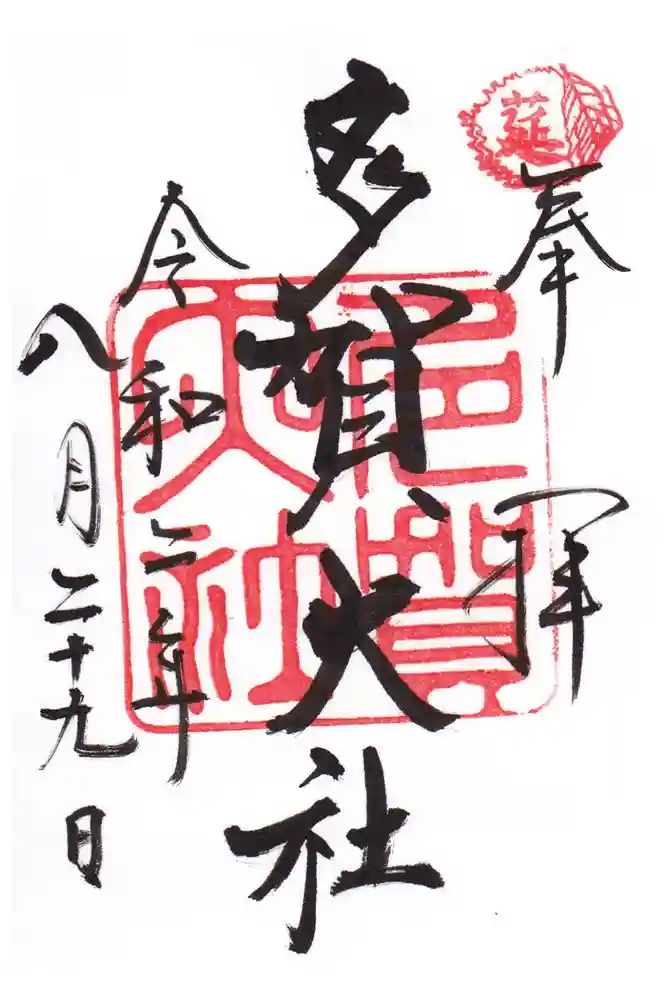 莚
奉拝
多賀大社
多賀大社
令和二年
八月二十九日